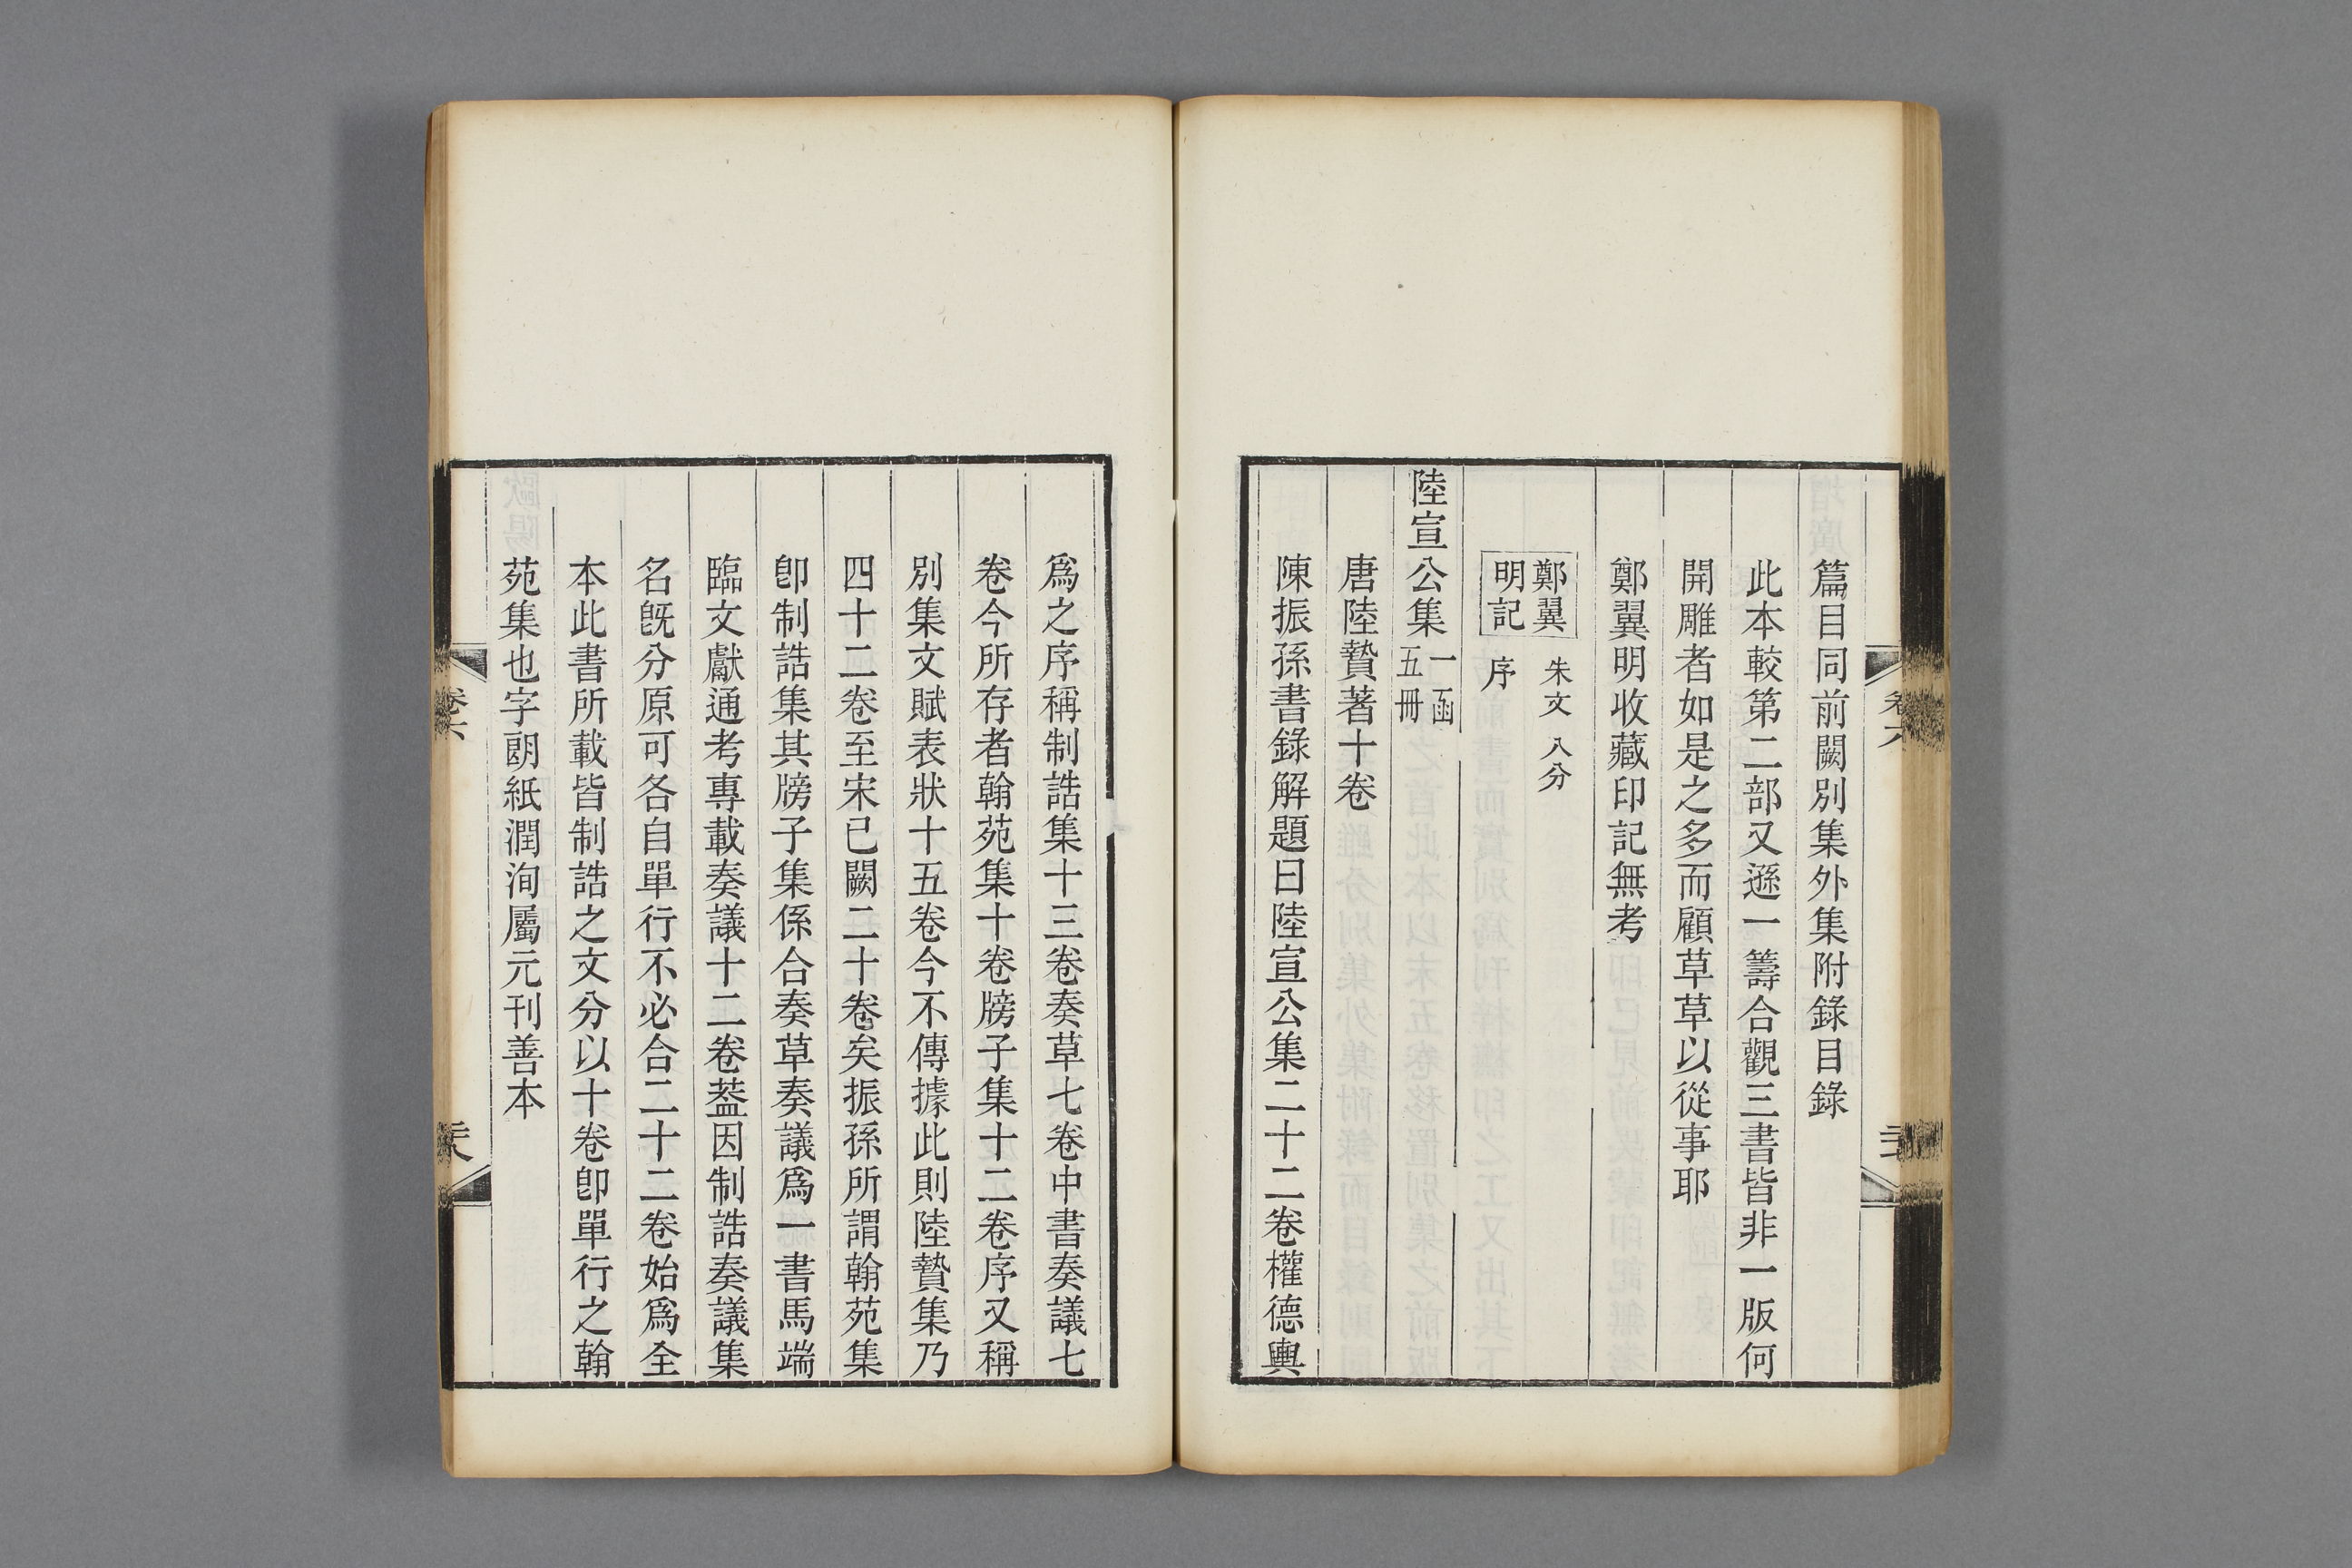 篇目同前闕別集外集附錄目錄
此本較第二部又遜一籌合觀三書皆非一版何
開雕者如是之多而顧草草以從事耶
鄭翼明收藏印記無考
鄭翼
明記
朱文 八分
序
陸宣公集
一函
五冊
唐陸贄著十卷
陳振孫書錄解題曰陸宣公集二十二卷權德輿
爲之序稱制誥集十三卷奏草七卷中書奏議七
卷今所存者翰苑集十卷牓子集十二卷序又稱
別集文賦表狀十五卷今不傳據此則陸贄集乃
四十二卷至宋已闕二十卷矣振孫所謂翰苑集
卽制誥集其牓子集係合奏草奏議爲一書馬端
臨文獻通考專載奏議十二卷葢因制誥奏議集
名旣分原可各自單行不必合二十二卷始爲全
本此書所載皆制誥之文分以十卷卽單行之翰
苑集也字朗紙潤洵屬元刊善本
卷六